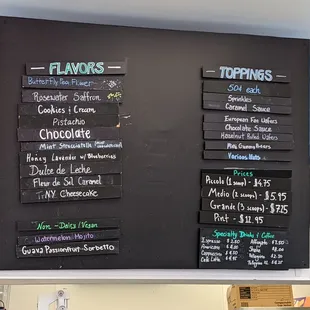 FLAVORS
Butterfly Pea Flower
Rosewater Saffron
Cookies & Cream
Pistachio
Chocolate
Mint Stracciatella
Honey Lavender w/ Blueberries
Dulce de Leche
Fleur de Sel Caramel
NY Cheesecake
Non-Dairy/Vegan
Watermelon Mojito
Guava Passionfruit Sorbetto
TOPPINGS
50¢ each
Sprinkles
Caramel Sauce
European Fan Wafers
Chocolate Sauce
Hazelnut Rolled Wafers
Mini Gummy Bears
Various Nuts
Prices
Piccolo (1 scoop) - $4.75
Medio (2 scoop) - $5.95
Grande (3 scoop) - $7.25
Pint - $12.95
Specialty Drinks & Coffee
Espresso
Affogato
Americano
Shake
Caffe Latte